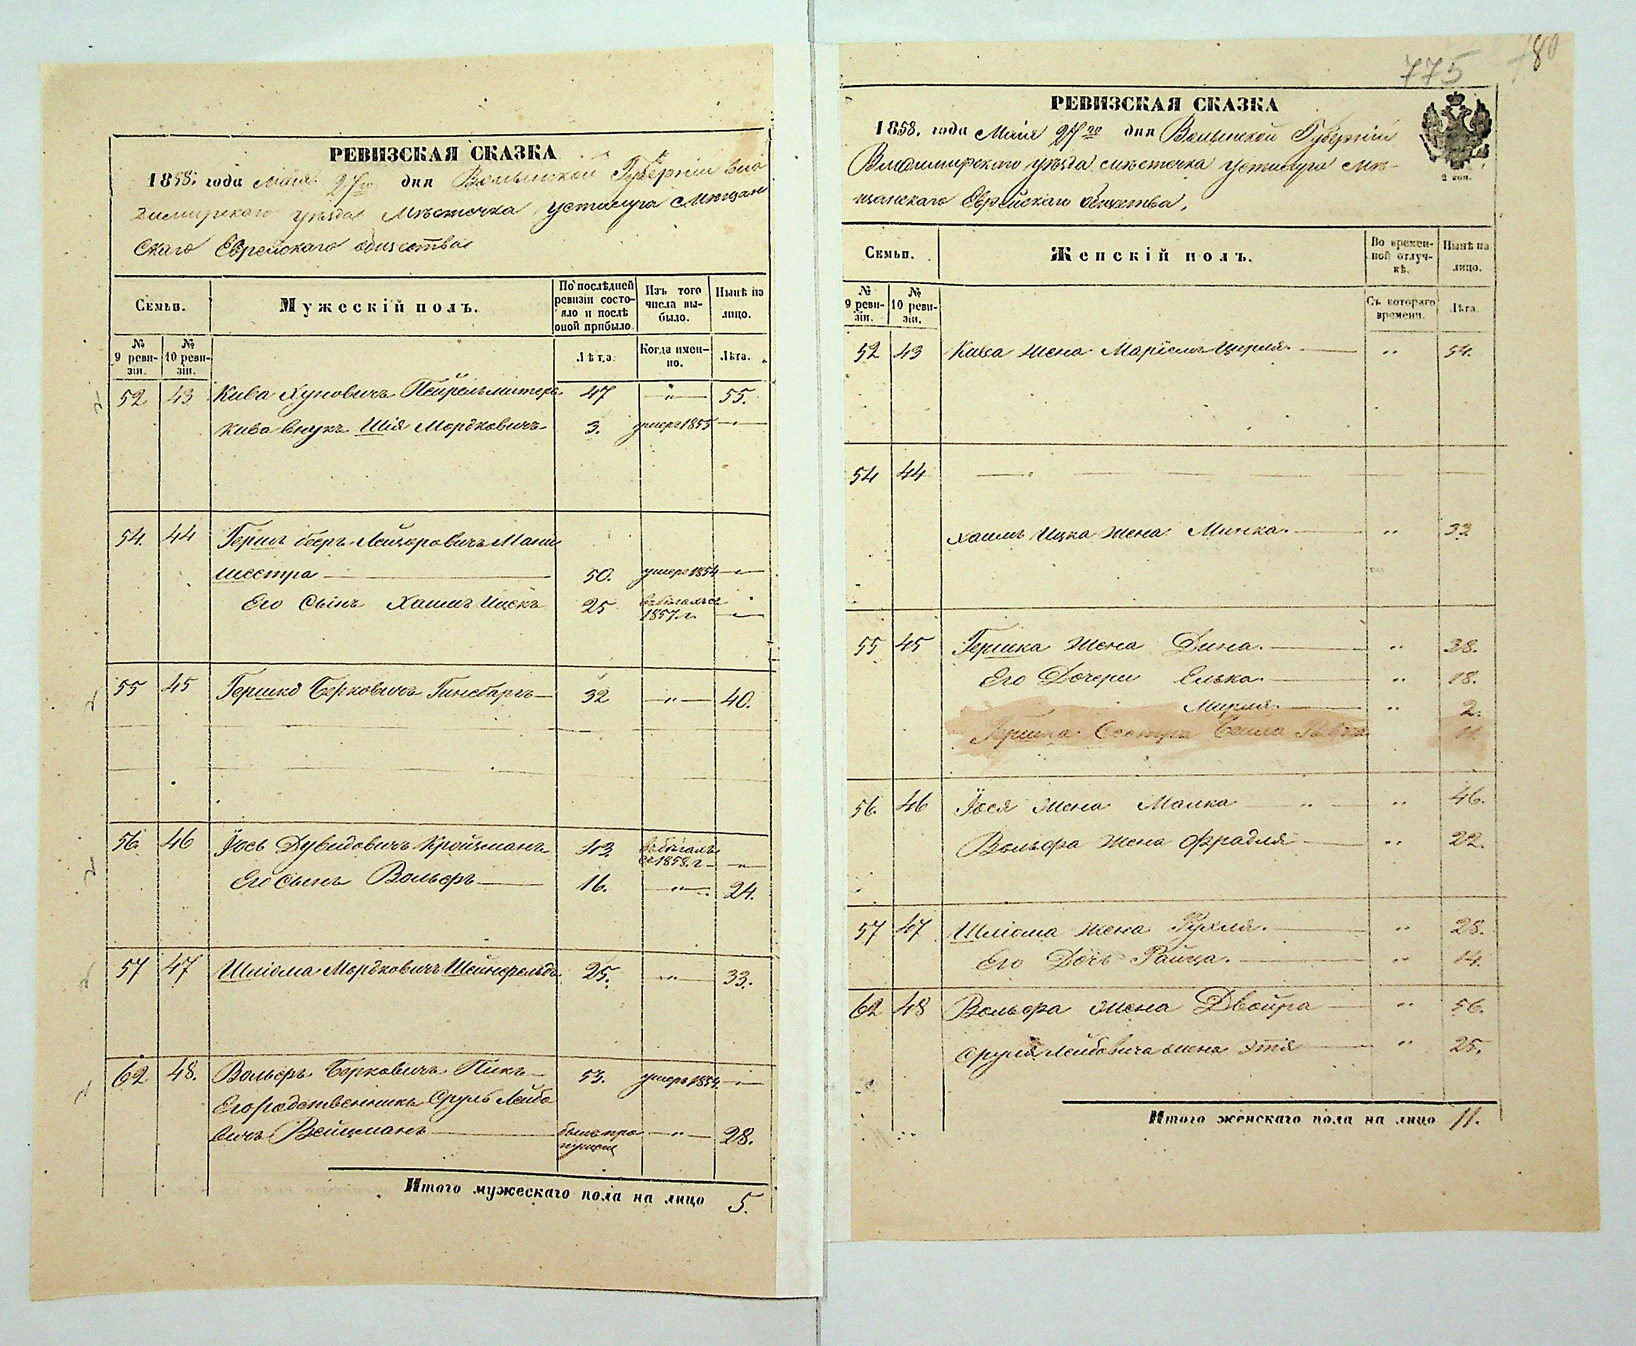 775
180
РЕВИЗСКАЯ СКАЗКА
1858. года Маія 27го дня Волынской Губерніи Вла
димирскаго уѣзда Мѣстечка Устилуга Мѣщан
скаго Еврейскаго общества
Семьи.
Мужескій полъ.
По послѣдней ревизіи состояло и послѣ оной прибыло.
Изъ того числа выбыло.
Нынѣ на лицо.
№ 9 ревизіи.
№ 10 ревизіи.
Лѣта.
Когда именно.
Лѣта.
52 43 Кива Хуновичъ 47 " 55.
Кива внукъ Шія Мордковичъ 3. умеръ 1855 "
54. 44 Гершъ Беръ Лейзоровичъ Мани
шестра 50. умеръ 1854 "
Его Сынъ Хаимъ Ицекъ 25 1857 г. "
55 45 Гершко Берковичъ Гинсбаргъ 32 " 40.
56. 46 Іось Дувидовичъ Кройцманъ 43 1858. г. "
Его сынъ Вольфъ 16. " 24.
57 47 Шліома Мордковичъ Шейнфельдъ 25. " 33.
62 48. Вольфъ Берковичъ Пикъ 53. умеръ 1854. "
Его родственникъ Сруль Лейбо
вичъ Вейцманъ былъ пропущенъ " 28.
Итого мужескаго пола на лицо 5.
РЕВИЗСКАЯ СКАЗКА
1858. года Маія 27го дня Волынской Губерніи
Владимирскаго уѣзда мѣстечка Устилуга Мѣ-
щанскаго Еврейскаго общества.
2 коп.
Семьи.
Женскій полъ.
Во временной отлучкѣ.
Нынѣ на лицо.
№ 9 ревизіи.
№ 10 ревизіи.
Съ котораго времени.
Лѣта.
52 43 Кива жена Маріемъ Цирля " 54.
54 44
Хаимъ Ицка жена Минка. " 33
55 45 Гершка жена Дина. " 38.
Его Дочери Елька. " 18.
Мирля. " 2.
Гершка Сестра Бейла 11.
56. 46 Іося жена Малка " " 46.
Вольфа жена Фрадля " 22.
57 47 Шліома жена Рухля. " 28.
Его Дочь Райца. " 14.
62 48 Вольфа жена Двойра " 56.
Сруля Лейбовича жена Этя " 25.
Итого женскаго пола на лицо 11.